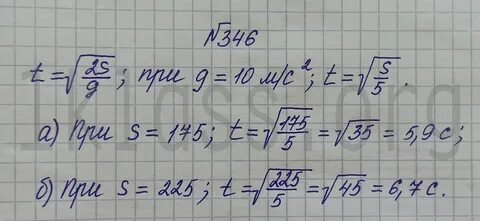 №346
t = √(2s/g); при g = 10 м/с²; t = √(s/5).
а) При s = 175; t = √(175/5) = √35 = 5,9 с;
б) При s = 225; t = √(225/5) = √45 = 6,7 с.